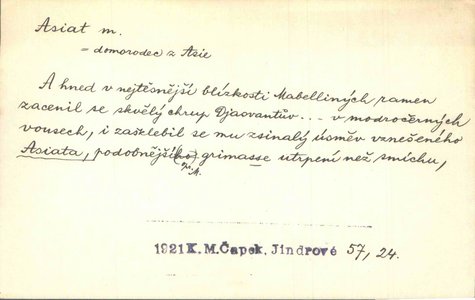 Asiat m.
= domorodec z Asie
A hned v nejtěsnější blízkosti Mabelliných ramen
zacenil se skvělý chrup Djaovantův... v modročerných
vousech, i zašklebil se mu zsinalý úsměv vznešeného
Asiata, podobnější grimasse utrpení než smíchu,
1921 K. M. Čapek, Jindrové 57, 24.